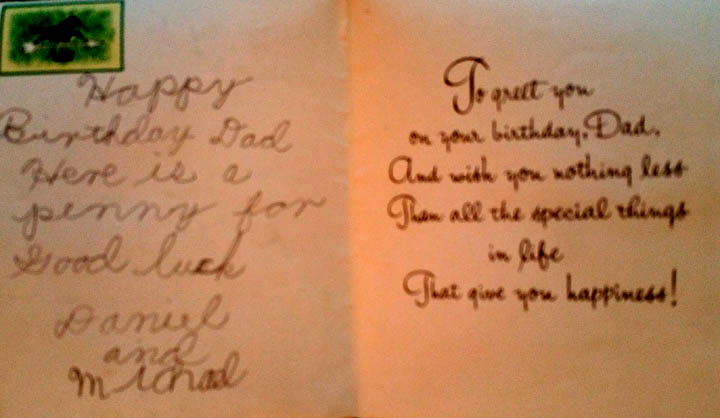 Happy
Birthday Dad
Here is a
penny for
Good luck
Daniel
and
Michael
To greet you
on your birthday, Dad,
And wish you nothing less
Than all the special things
in life
That give you happiness!